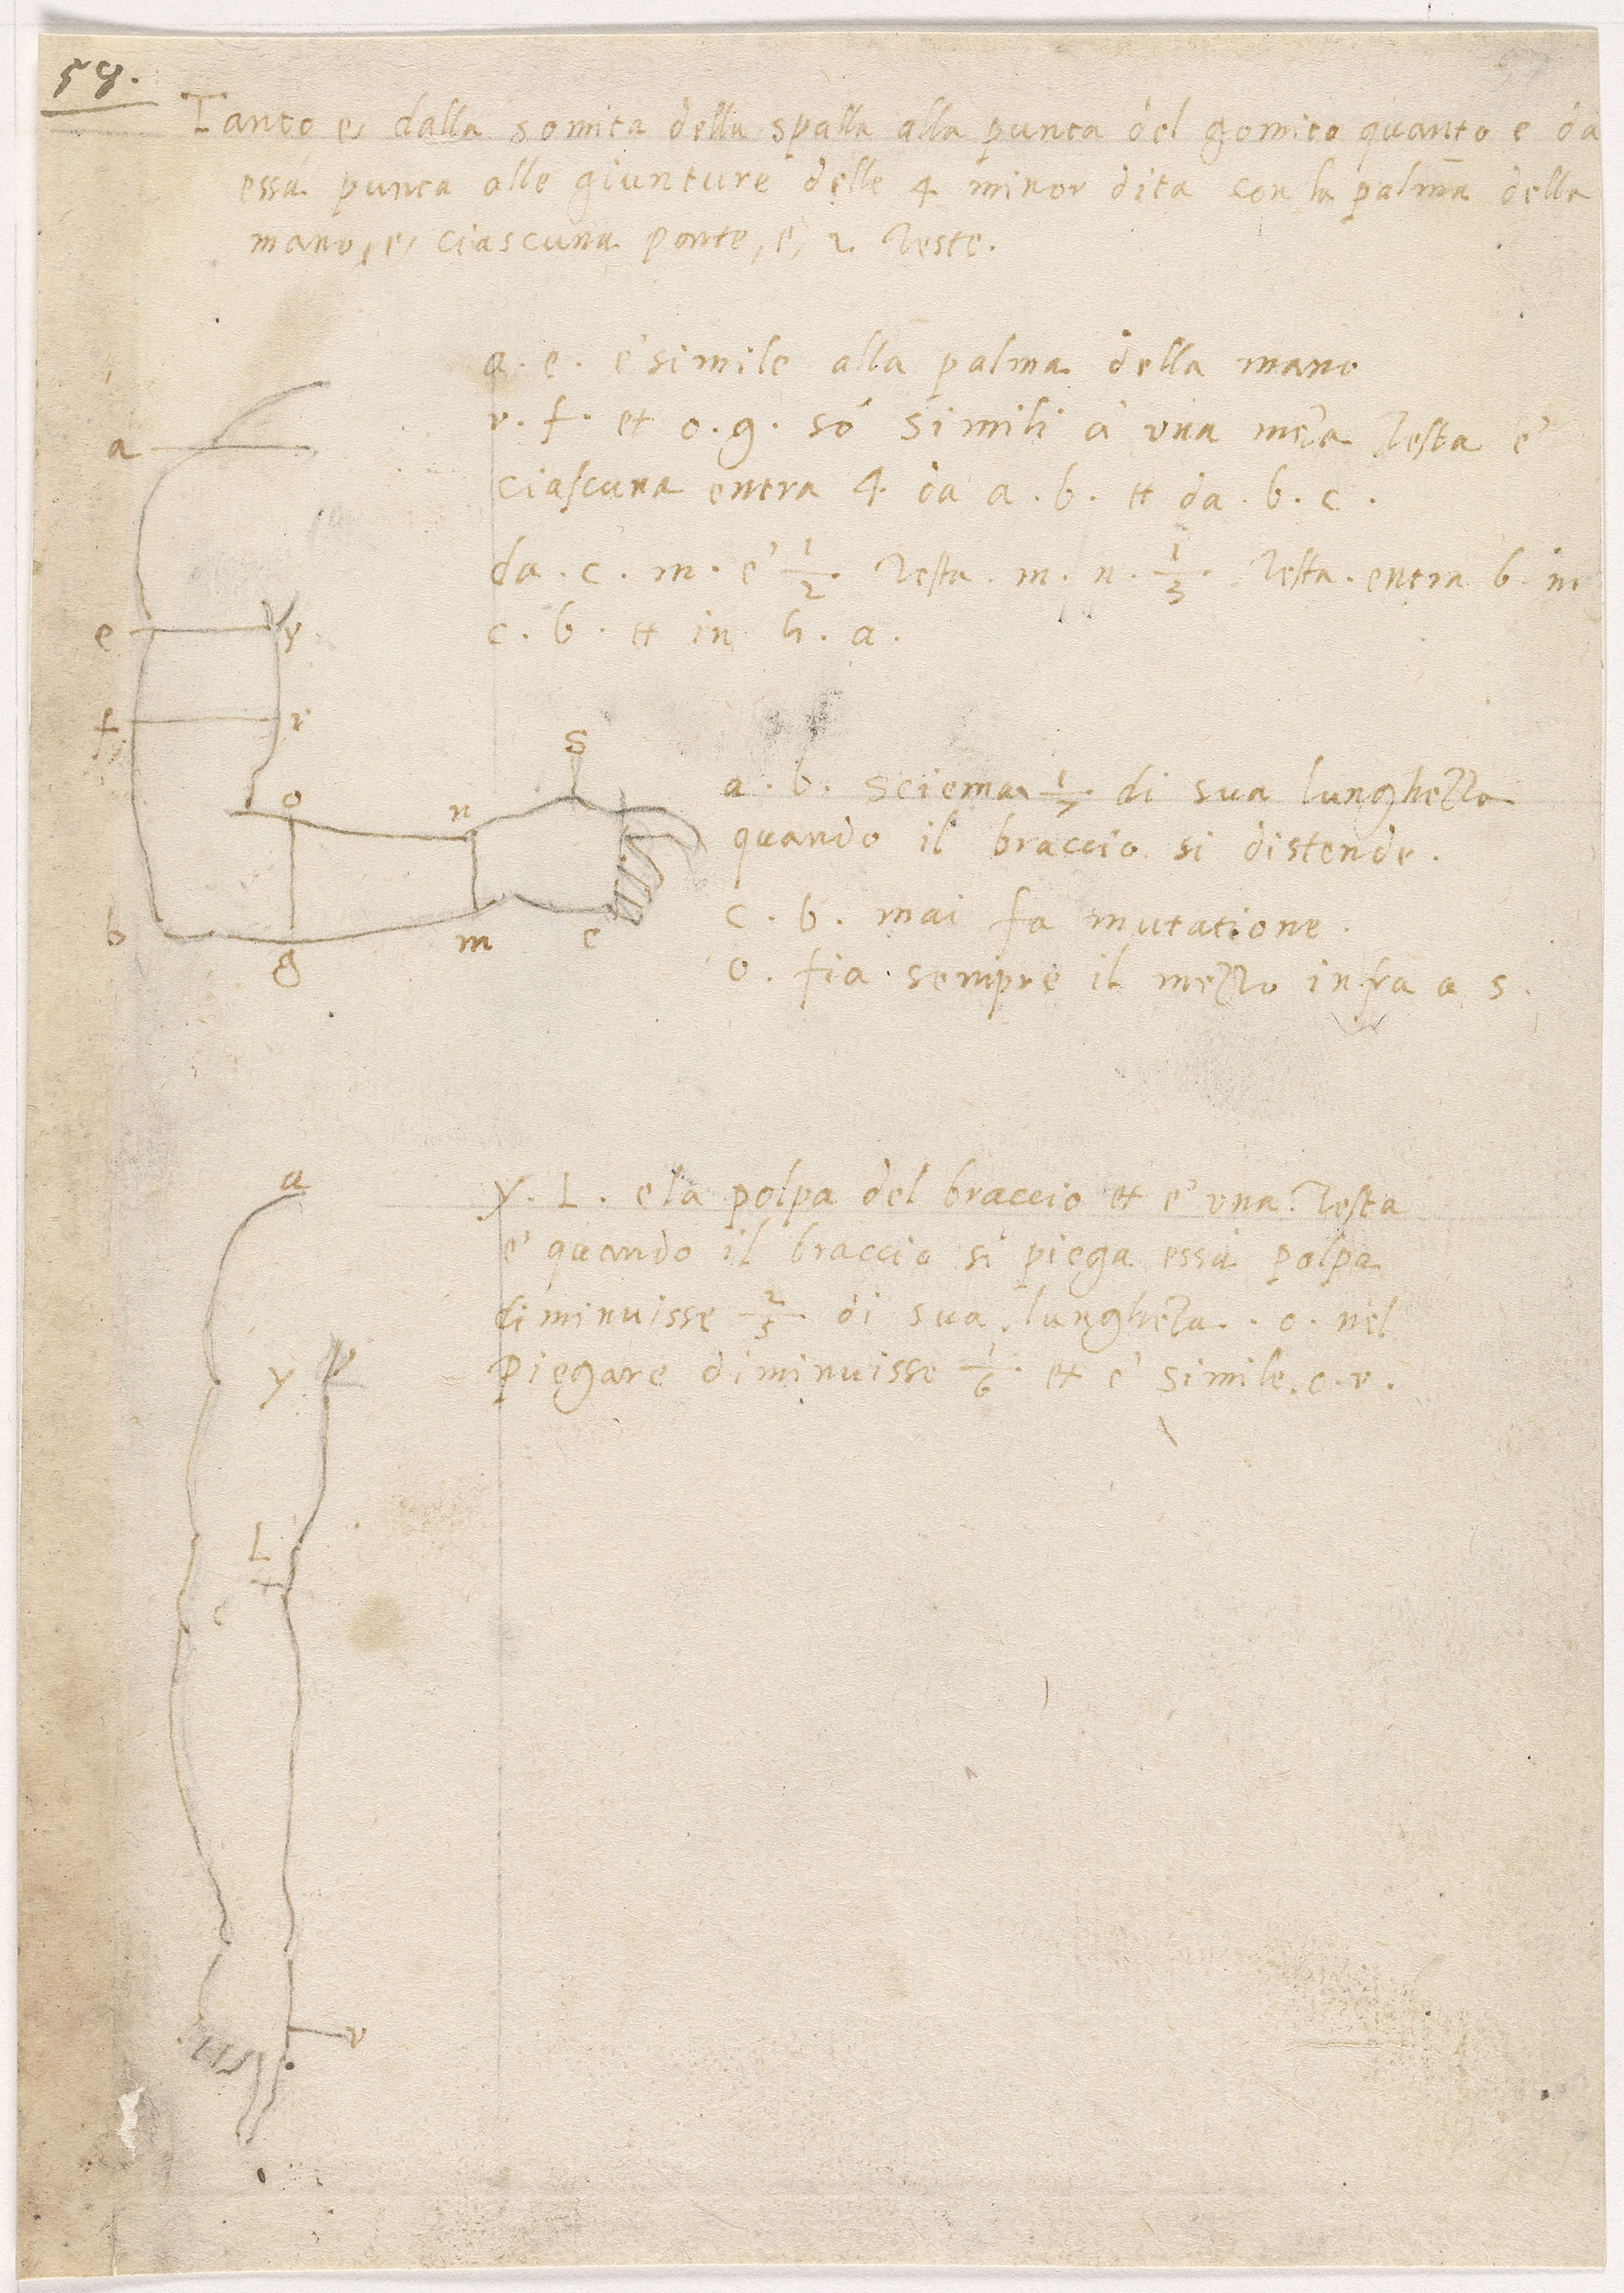 58.
Tanto e, dalla somita della spalla alla punta del gomito quanto e da
essa punta alle giunture delle 4 minor dita con la palma della
mano, e, ciascuna parte, e, 2 teste.
a. e. e' simile alla palma della mano
r. f. et o. g. sō simili à una meza testa e'
ciascuna entra 4 da a. b. et da. b. c.
da. c. m. e' 1/2. testa. m. n. 1/3. testa. entra b. in
c. b. et in h. a.
a
e y
f r
S
o
n
b
g
m
c
a. b. sciema 1/7. di sua lunghezza
quando il braccio si distende.
c. b. mai fa mutatione.
o. fia sempre il mezzo infra a s.
a
y. L. e la polpa del braccio et e' una testa
e' quando il braccio si piega essa polpa
diminuisse 2/3 di sua lungheza. o. nel
y
piegare diminuisse 1/6. et e' simile. o. r.
L
c
r